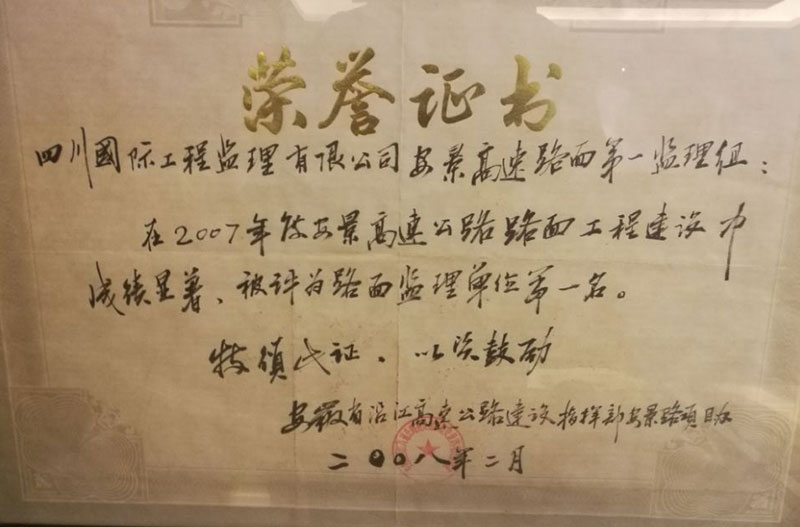 荣誉证书
四川國际工程监理有限公司安景高速路面第一监理组：
在2007年度安景高速公路路面工程建设中
成绩显著、被评为路面监理单位第一名。
特颁此证．以资鼓励
安徽省沿江高速公路建设指挥部安景路项目办
二〇〇八年二月